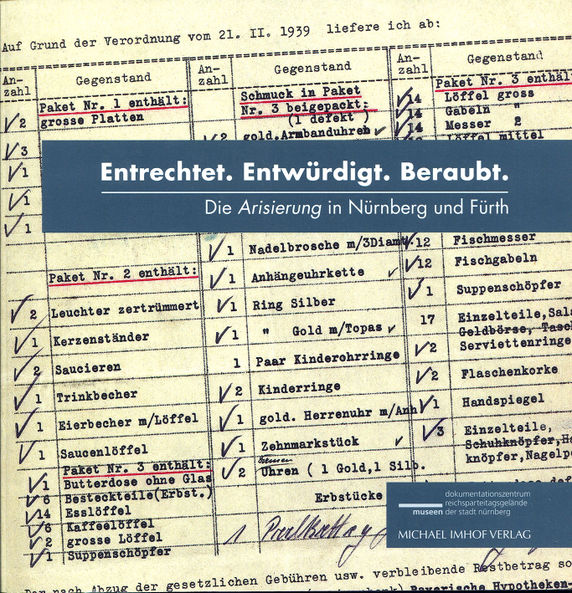 Auf Grund der Verordnung vom 21. II. 1939 liefere ich ab:
An-
zahl
Gegenstand
Paket Nr. 1 enthält:
2 grosse Platten
3
1
1
1
Paket Nr. 2 enthält:
2 Leuchter zertrümmert
1 Kerzenständer
2 Saucieren
1 Trinkbecher
1 Eierbecher m/Löffel
1 Saucenlöffel
Paket Nr. 3 enthält:
1 Butterdose ohne Glas
6 Besteckteile(Erbst.)
14 Esslöffel
6 Kaffeelöffel
2 grosse Löffel
1 Suppenschöpfer
An-
zahl
Gegenstand
Schmuck in Paket
Nr. 3 beigepackt:
(1 defekt )
2 gold.Armbanduhren
Entrechtet. Entwürdigt. Beraubt.
Die Arisierung in Nürnberg und Fürth
1 Nadelbrosche m/3Diamt
1 Anhängeuhrkette
1 Ring Silber
1 " Gold m/Topas
1 Paar Kinderohrringe
2 Kinderringe
1 gold. Herrenuhr m/Anh
1 Zehnmarkstück
2 Uhren ( 1 Gold,1 Silb.
Erbstücke
An-
zahl
Gegenstand
Paket Nr. 3 enthäl
14 Löffel gross
14 Gabeln "
14 Messer 2
Löffel mittel
12 Fischmesser
12 Fischgabeln
1 Suppenschöpfer
17 Einzelteile,Sal
Geldbörse, Tasc
2 Serviettenringe
2 Flaschenkorke
1 Handspiegel
3 Einzelteile,
Schuhknöpfer,H
knöpfer,Nagelp
dokumentationszentrum
reichsparteitagsgelände
museen der stadt nürnberg
MICHAEL IMHOF VERLAG
nach Abzug der gesetzlichen Gebühren usw. verbleibende Restbetrag so
Bayerische Hypotheken-